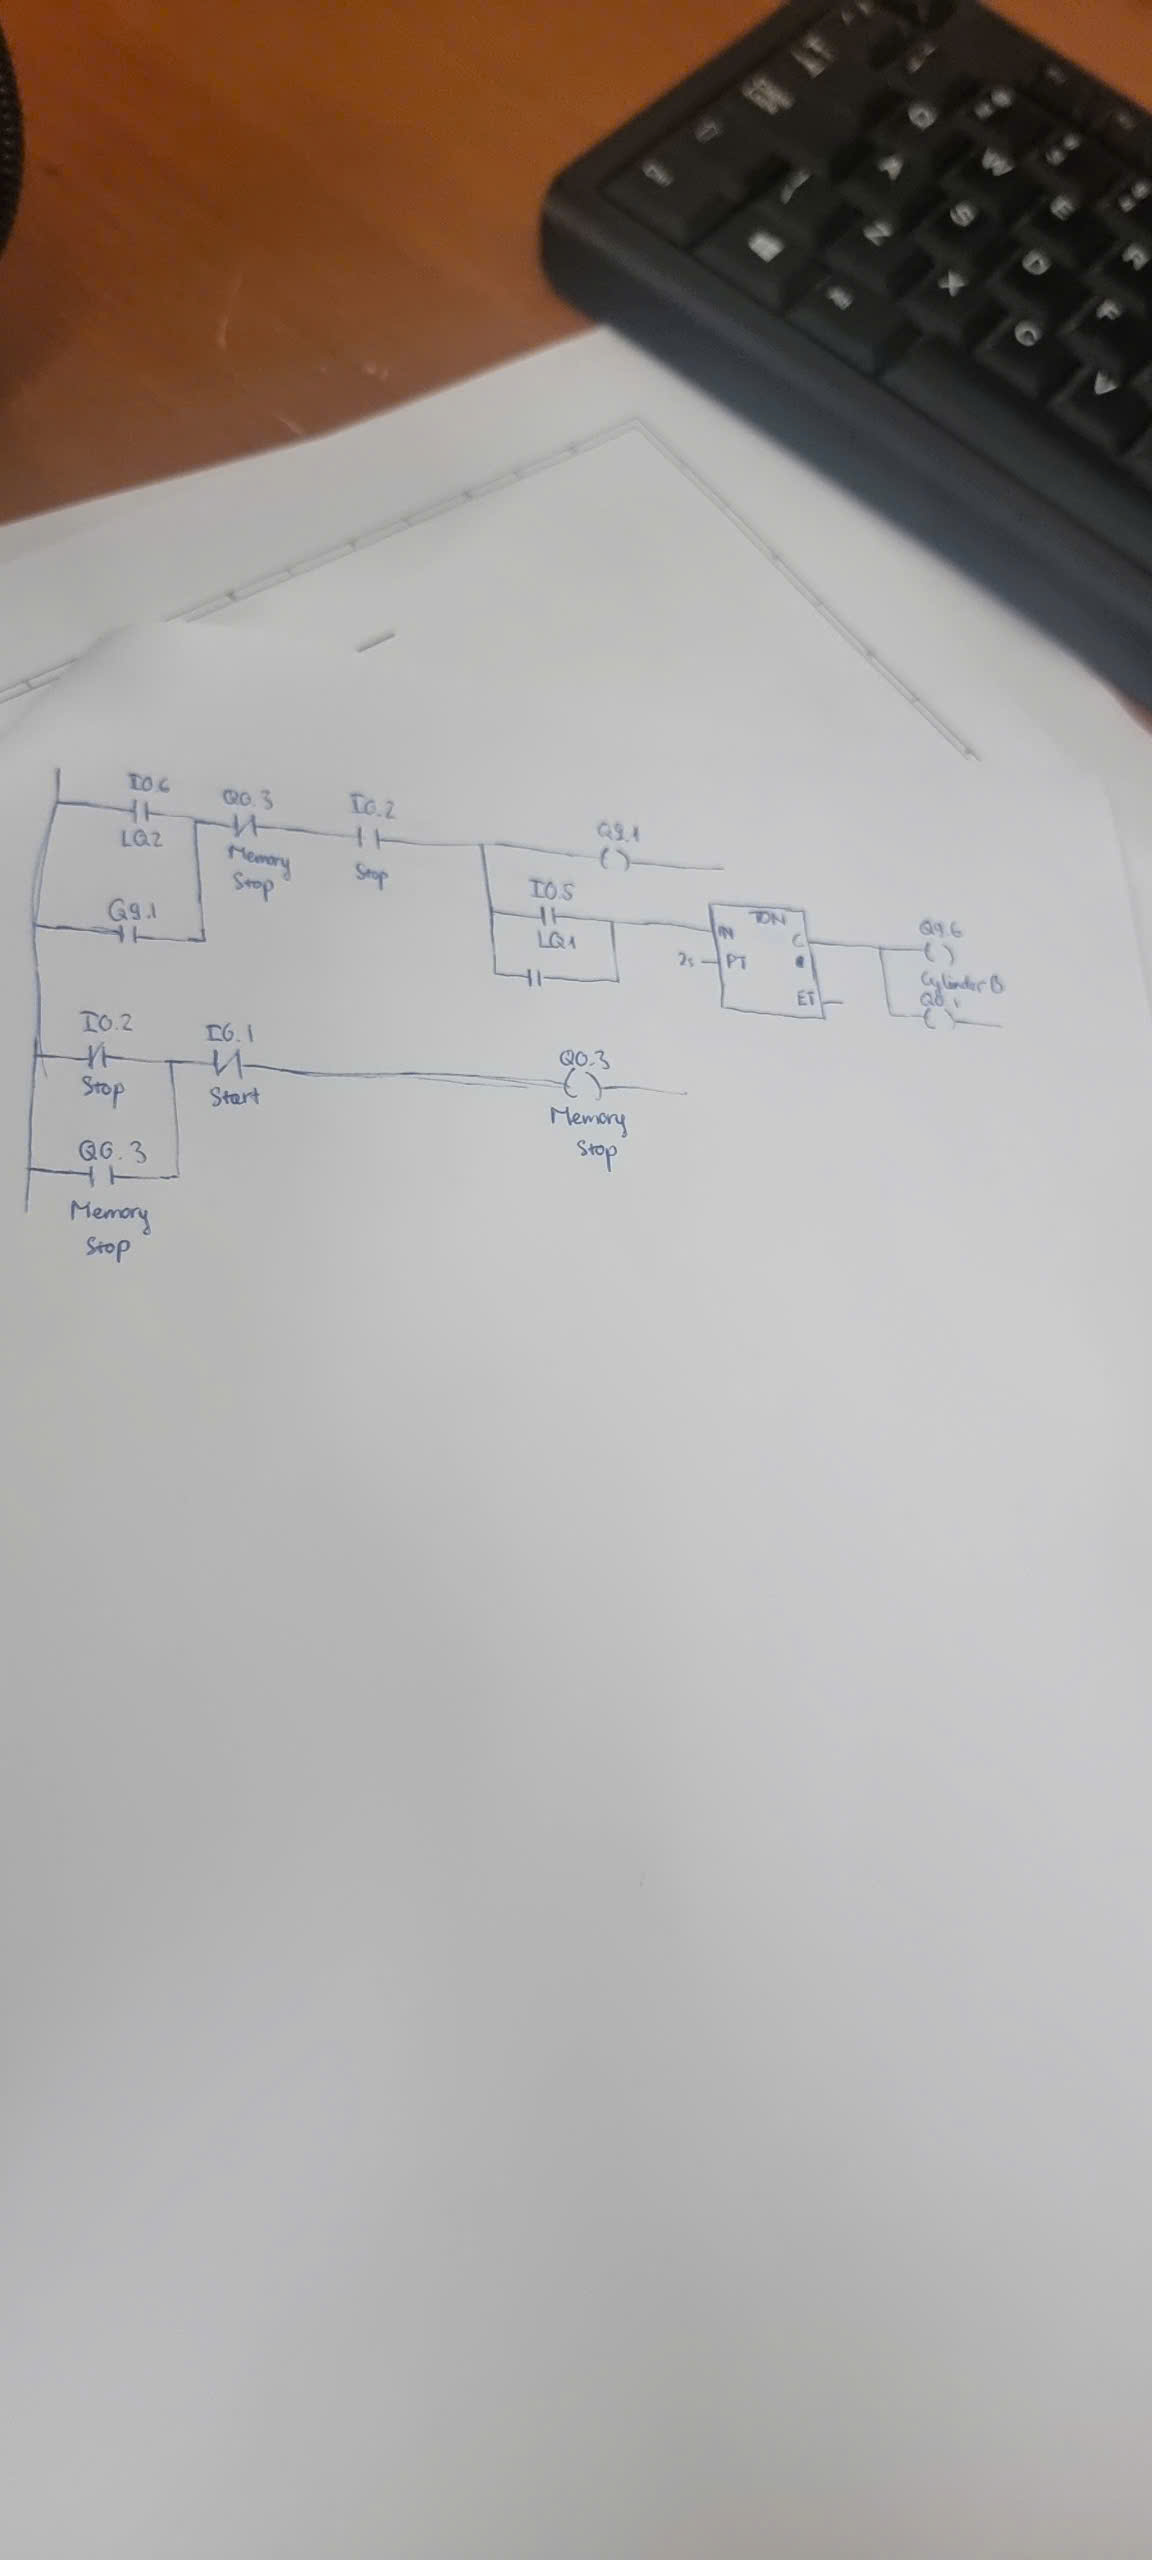 I0.6
LQ2
Q0.3
Memory
Stop
I0.2
Stop
Q9.1
Q9.1
I0.5
LQ1
TON
IN
2s
PT
ET
Q9.6
Cylinder B
I0.2
Stop
I0.1
Start
Q0.3
Memory
Stop
Q0.3
Memory
Stop
A
W
S
E
Z
D
R
X
F
C
V